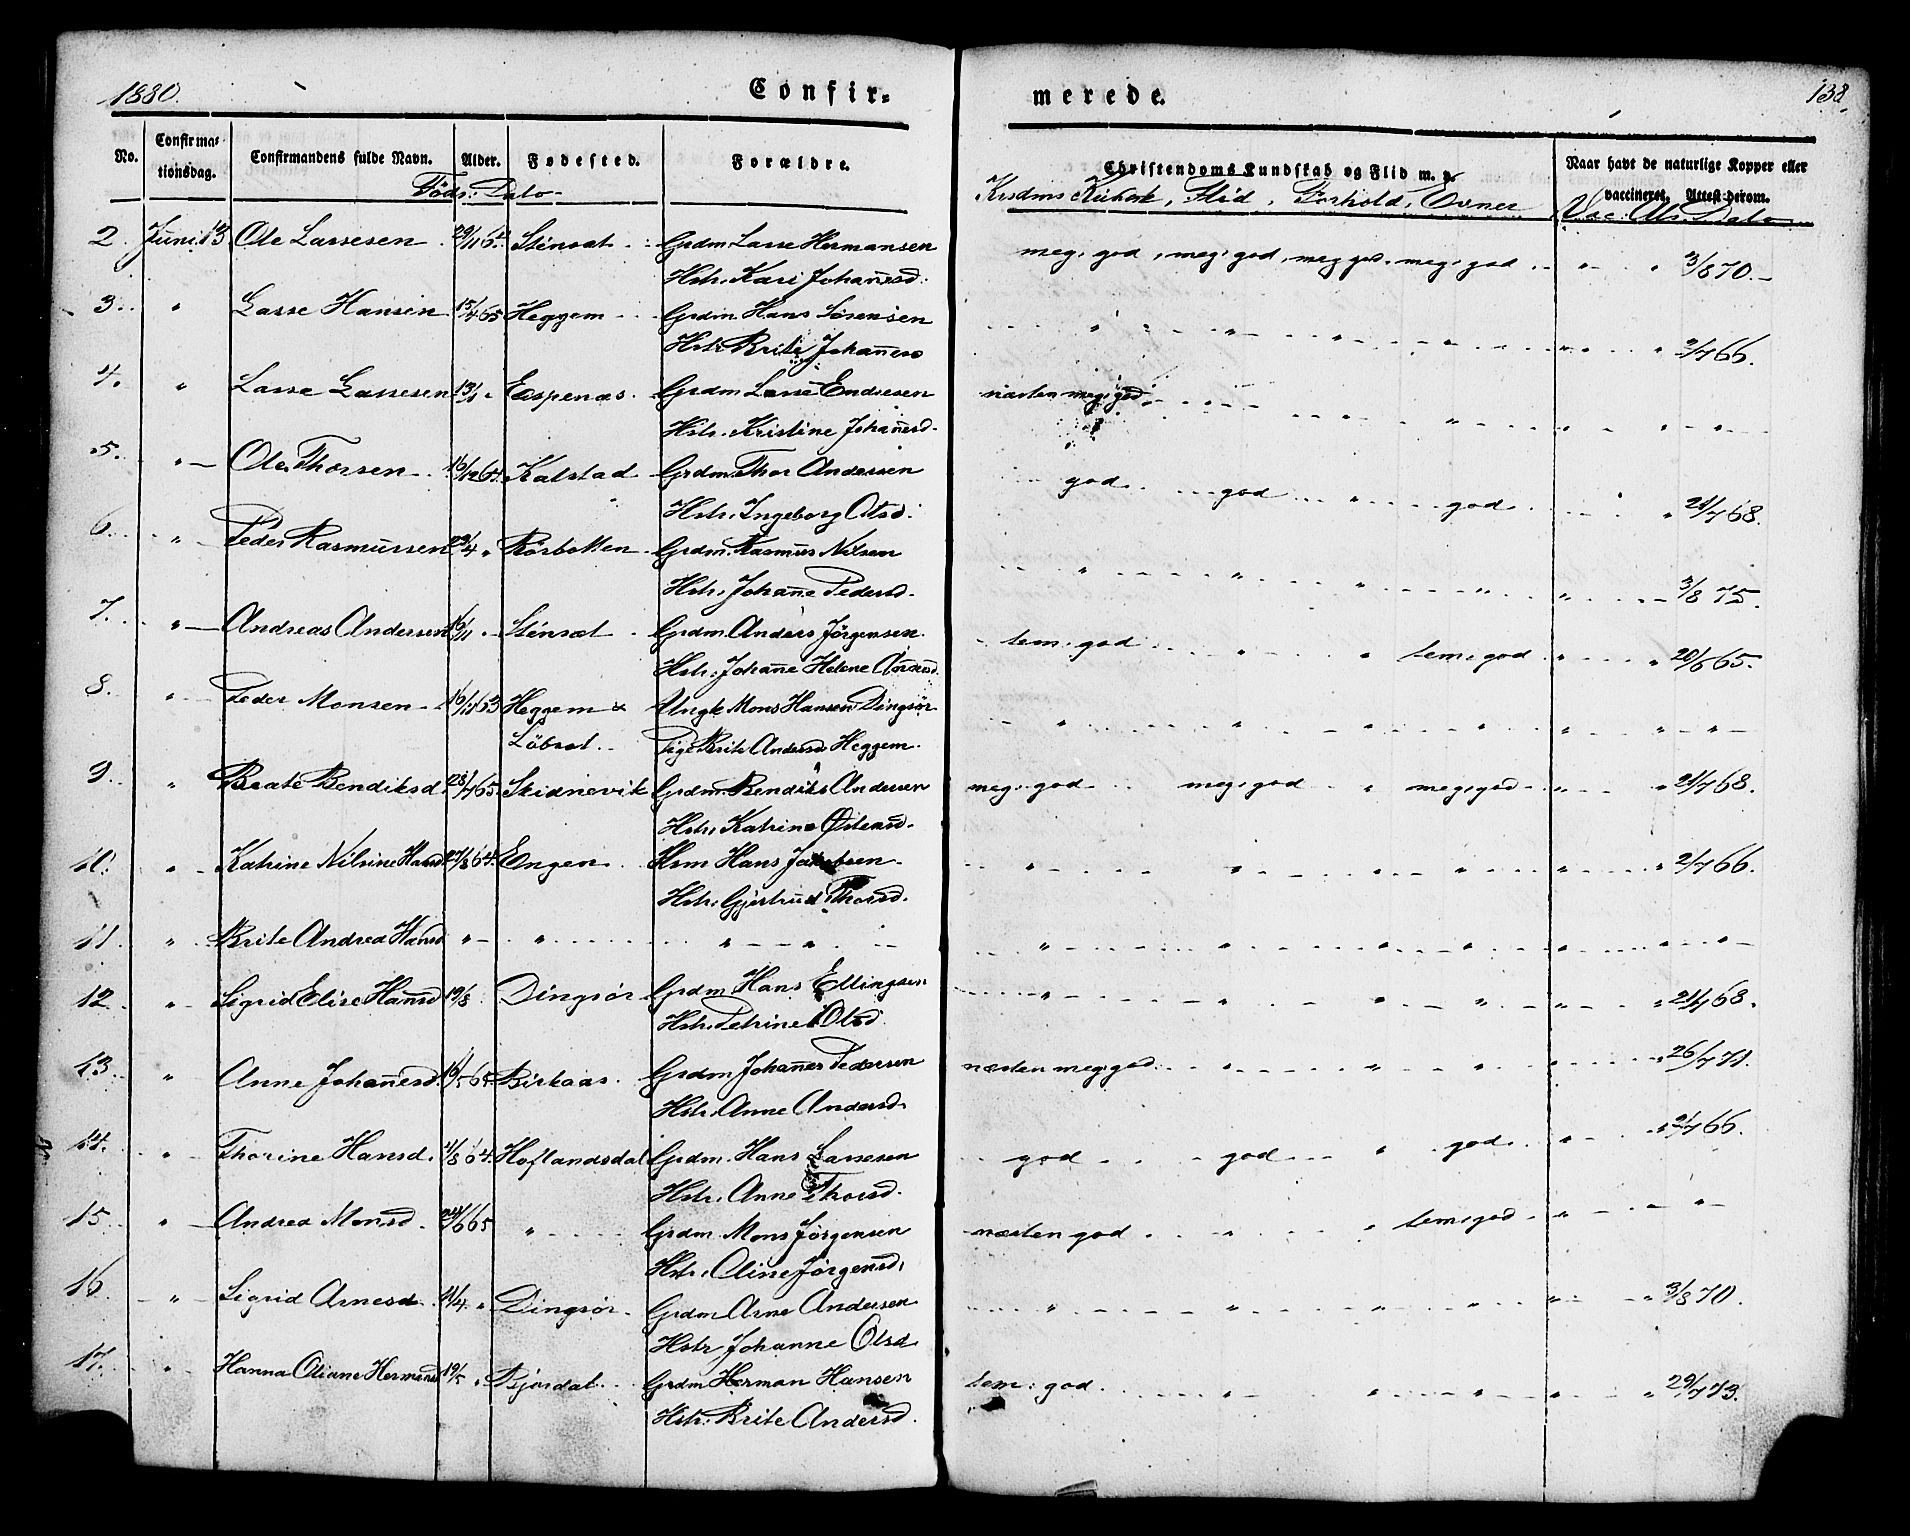 1880.
Confir-
merede.
138
No.
Confirmationsdag.
Confirmandens fulde Navn.
Alder.
Fødested.
Forældre.
Christendoms Kundskab og Flid m. v.
Naar havt de naturlige Kopper eller vaccineret, Attest derom.
Föds: Dato
Flid, Forhold, Evner
Vac. Att. Dato
2. Juni 13 Ole Lassesen Stensæt Grdm. Lasse Hermansen meg: god, meg: god, meg god, meg: god " " 3/8 70.
Hstr. Kari Johan̄esd.
3. " Lasse Hansen 15/4 65 Heggem Grdm. Hans Sörensen " " " " " " 2/7 66.
Hstr. Brite Johan̄esd
4. " Lasse Lassesen 13/1 " Espenæs. Grdm. Lasse Endresen næsten meg: god " " " "
Hstr. Kristine Johan̄esd.
5. " Ole Thorsen 16/12 64. Kalstad Grdm. Thor Andersen god god " god " 21/7 68.
Hstr. Ingeborg Olsd.
6. " Peder Rasmussen 23/4 " Rörbotten Grdm. Rasmus Nilsen " " " " " 3/8 75.
Hstr. Johan̄e Pedersd.
7. " Andreas Andersen 16/11 " Stensæt Grdm. Anders Jörgensen tem: god " " tem: god " " 20/6 65.
Hstr. Johan̄e Helene
8. " Peder Monsen 16/11 63 Heggem & Ungk. Mons Hansen Dingsör " " " " " " "
Löbræt. Pige Brite Andersd Heggem.
9. " Beate Bendiksd. 28/7 65. Skidnevik Grdm. Bendiks Andersen meg: god meg: god " meg: god " " 21/7 68.
Hstr. Katrine Ostensd.
10. " Katrine Nilsine Hansd 27/8 64. Engen Hsm Hans Jakobsen " " " " " " 2/7 66.
Hstr. Gjertrud Thorsd.
11. " Brite Andrea Hansd " " " " " " " " " " "
12. " Sigrid Elise Hansd 19/8 Dingsör Grdm. Hans Ellingsen " " " " " " 21/7 68.
Hstr. Petrine Olsd.
13. " Anne Johan̄esd. 16/5 65. Birkaas. Grdm Johan̄es Pedersen næsten meg: god " " " " " 26/7 71.
Hstr. Anne Andersd.
14. " Thorine Hansd. 4/8 64. Hoflandsdal Grdm. Hans Lassesen god god " god " " 2/7 66.
Hstr. Anne Thorsd.
15. " Andrea Monsd. 24/6 65 " Grdm. Mons Jörgensen næsten god " " tem: god " " "
Hstr. Oline Jörgensd.
16. " Sigrid Arnesd. 11/4. " Dingsör Grdm. Arne Andersen " " " " " " 3/8 70.
Hstr Johanne Olsd
17. " Hanna Oliane Hermansd 19/5 " Bjordal Grdm Herman Hansen tem: god " " " " " 29/7 73.
Hstr. Brite Andersd.